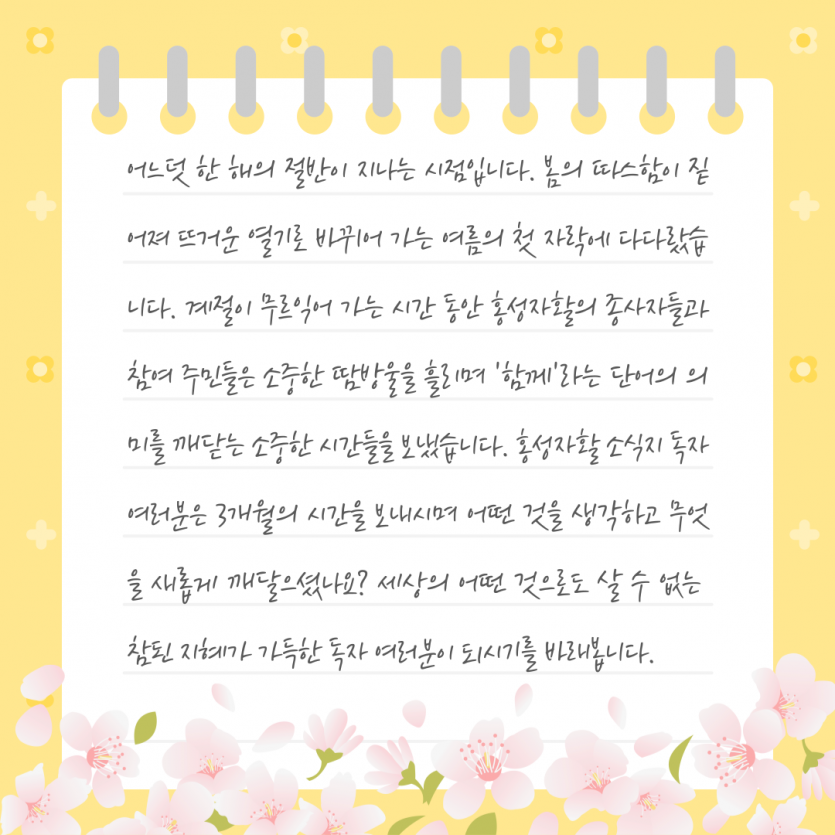 어느덧 한 해의 절반이 지나는 시점입니다. 봄의 따스함이 짙
어져 뜨거운 열기로 바뀌어 가는 여름의 첫 자락에 다다랐습
니다. 계절이 무르익어 가는 시간 동안 홍성자활의 종사자들과
참여 주민들은 소중한 땀방울을 흘리며 '함께'라는 단어의 의
미를 깨닫는 소중한 시간들을 보냈습니다. 홍성자활 소식지 독자
여러분은 3개월의 시간을 보내시며 어떤 것을 생각하고 무엇
을 새롭게 깨달으셨나요? 세상의 어떤 것으로도 살 수 없는
참된 지혜가 가득한 독자 여러분이 되시기를 바래봅니다.